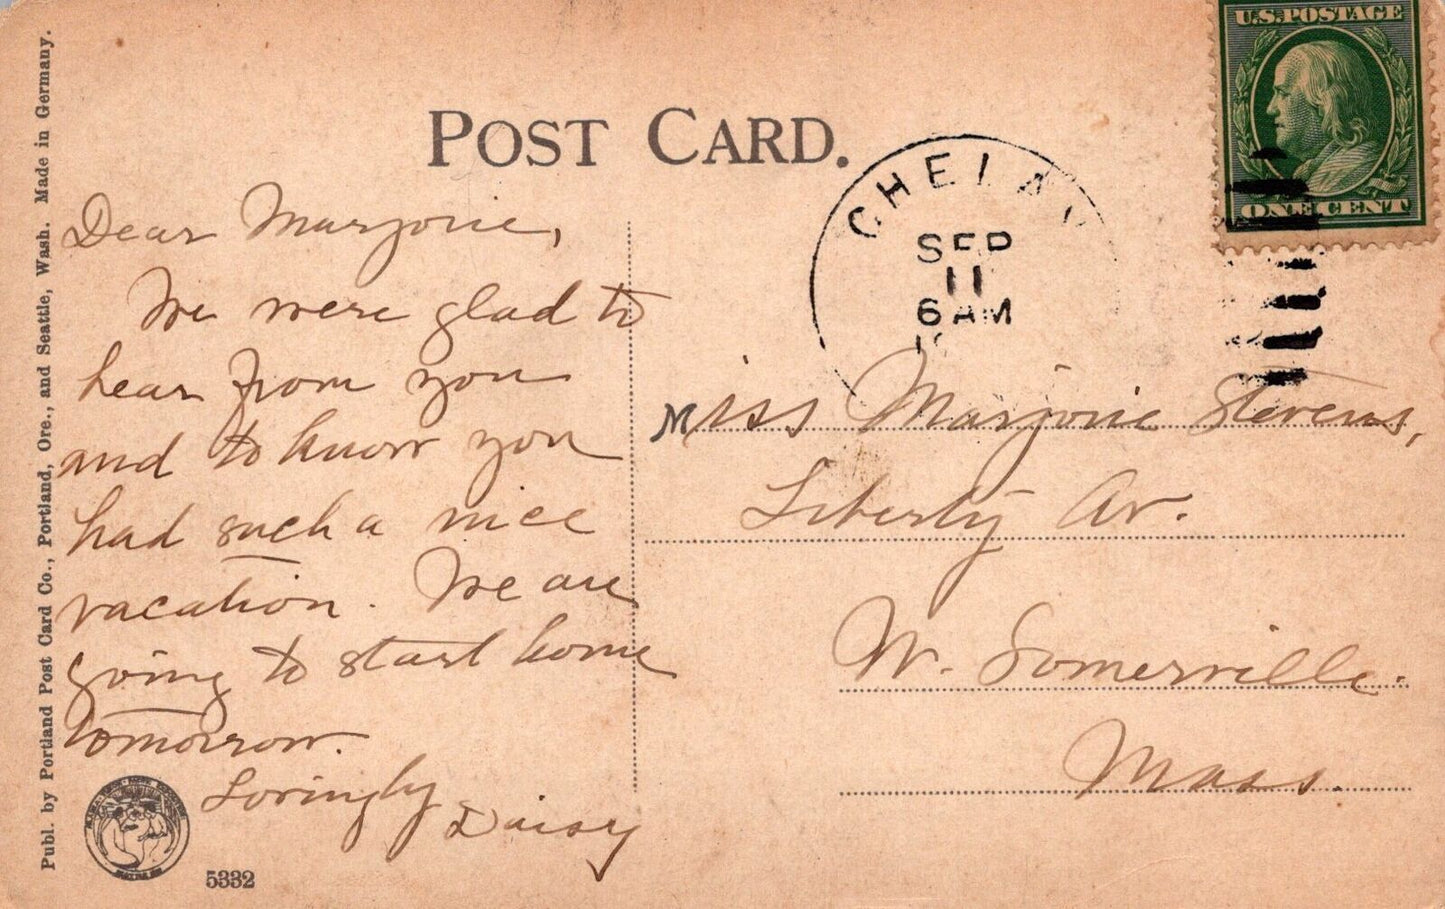 POST CARD.
U.S. POSTAGE
ONE CENT
CHELAN
SEP
11
6 AM
Dear Marjorie,
We were glad to
hear from you
and to know you
had such a nice
vacation. We are
going to start home
tomorrow.
Lovingly
Daisy
Miss Marjorie Stevens,
Liberty Av.
W. Somerville.
Mass.
Publ. by Portland Post Card Co., Portland, Ore., and Seattle, Wash. Made in Germany.
5332